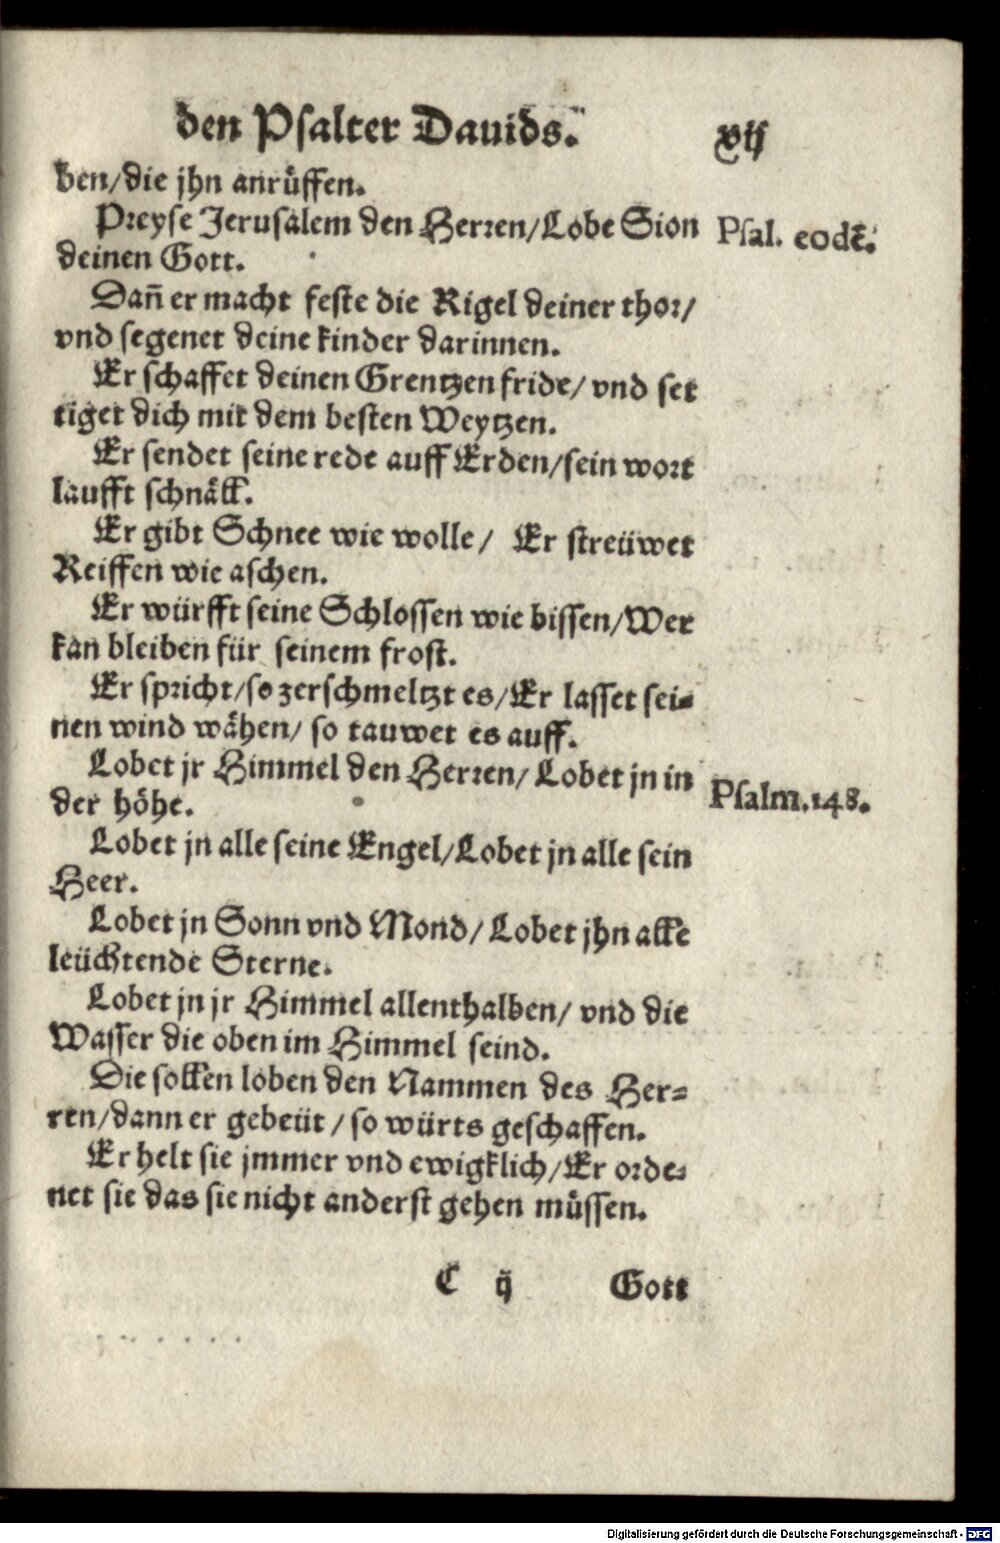 den Psalter Dauids. xij
ben/die jhn anrůffen.
Preyse Jerusalem den Herren/Lobe Sion Psal. eodē.
deinen Gott.
Dañ er macht feste die Rigel deiner thor/
vnd segenet deine kinder darinnen.
Er schaffet deinen Grentzen fride/ vnd set
tiget dich mit dem besten Weytzen.
Er sendet seine rede auff Erden/sein wort
laufft schnåll.
Er gibt Schnee wie wolle/ Er streüwet
Reiffen wie aschen.
Er würfft seine Schlossen wie bissen/Wer
kan bleiben für seinem frost.
Er spricht/so zerschmeltzt es/Er lasset sei-
nen wind wåhen/ so tauwet es auff.
Lobet jr Himmel den Herren/ Lobet jn in Psalm.148.
der höhe.
Lobet jn alle seine Engel/Lobet jn alle sein
Heer.
Lobet jn Sonn vnd Mond/ Lobet jhn alle
leüchtende Sterne.
Lobet jn jr Himmel allenthalben/ vnd die
Wasser die oben im Himmel seind.
Die sollen loben den Nammen des Her-
ren/dann er gebeüt/ so würts geschaffen.
Er helt sie jmmer vnd ewigklich/Er orde-
net sie das sie nicht anderst gehen müssen.
C ij Gott
Digitalisierung gefördert durch die Deutsche Forschungsgemeinschaft - DFG